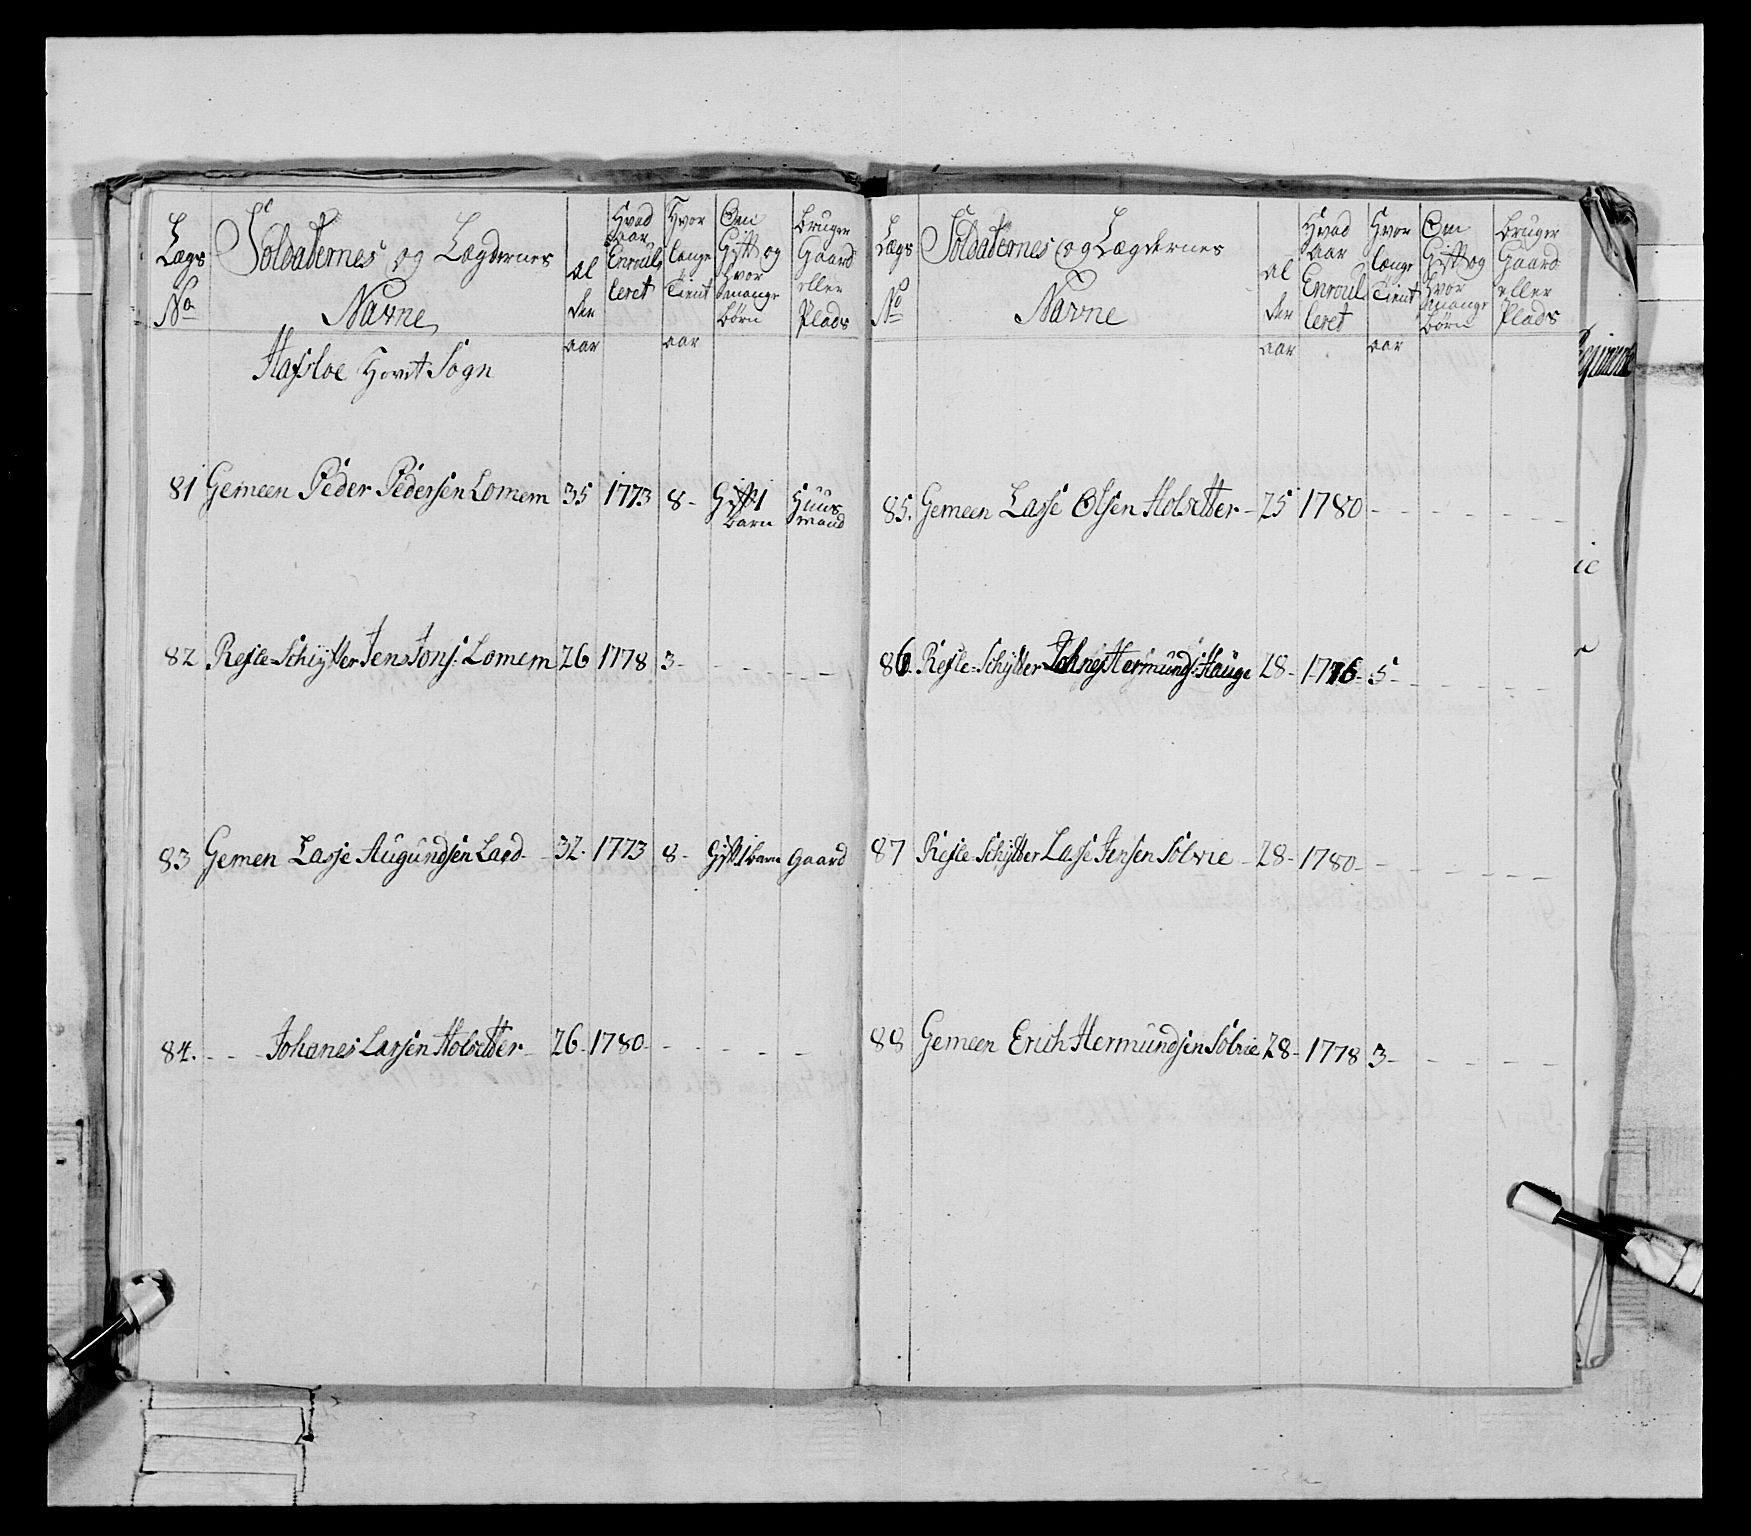 Lægs No
Soldaternes og Lægdernes Navne
Al der aar
Hvad aar Enroul leret
Hvor længe Tient aar
Om Gift og hvor mange børn
Bruger Gaard eller Plads
Hafsloe Hovet Sogn
81 Gemeen Peder Pedersen Lomem 35 1773 8- Gift 1 barn Huus mand
82 Refle-Schytter Jens Jons: Lomem 26 1778 3- - - - -
83 Gemen Lasse Augundsen Lard- 32- 1773 8- Gift 1 barn Gaard
84. - - - Johanes Larsen Molvetter- 26- 1780- - - - - -
Lægs No
Soldaternes og Lægdernes Navne
Al der aar
Hvad aar Enroul leret
Hvor længe Tient aar
Om Gift og hvor mange børn
Bruger Gaard eller Plads
85. Gemeen Lasse Olsen Molvetter- 25 1780 - - - - - -
86. Refle-Schytter Johnes Hermunds: Hauge 28- 1776- 5- - - - -
87 Refle-Schytter Lasse Jensen Solvie - 28- 1780- - - - - -
88 Gemeen Erich Hermundsen Solvie 28- 1778 3- - - - -